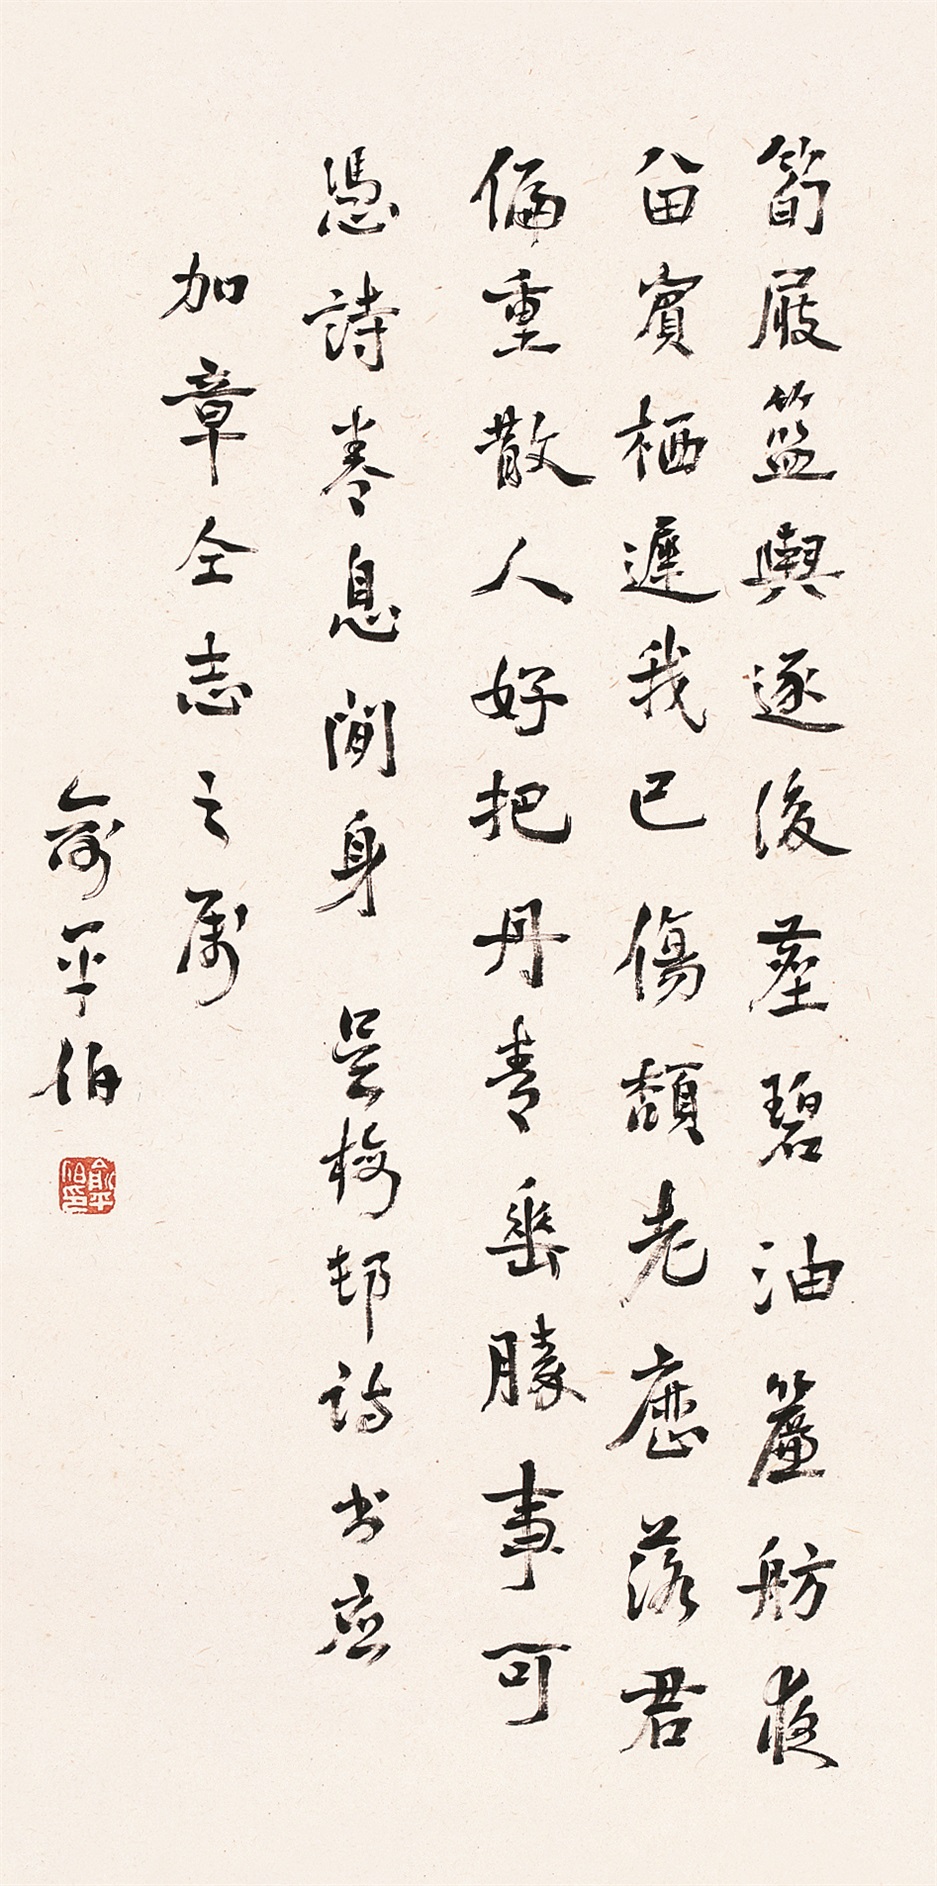 筍屐籃輿逐後塵碧油簾舫夜
留賓栖遲我已傷頹老歷落君
偏重散人好把丹青垂勝事可
憑詩卷息閒身 吳梅邨詩书應
加章仝志之属
俞平伯
俞平伯印